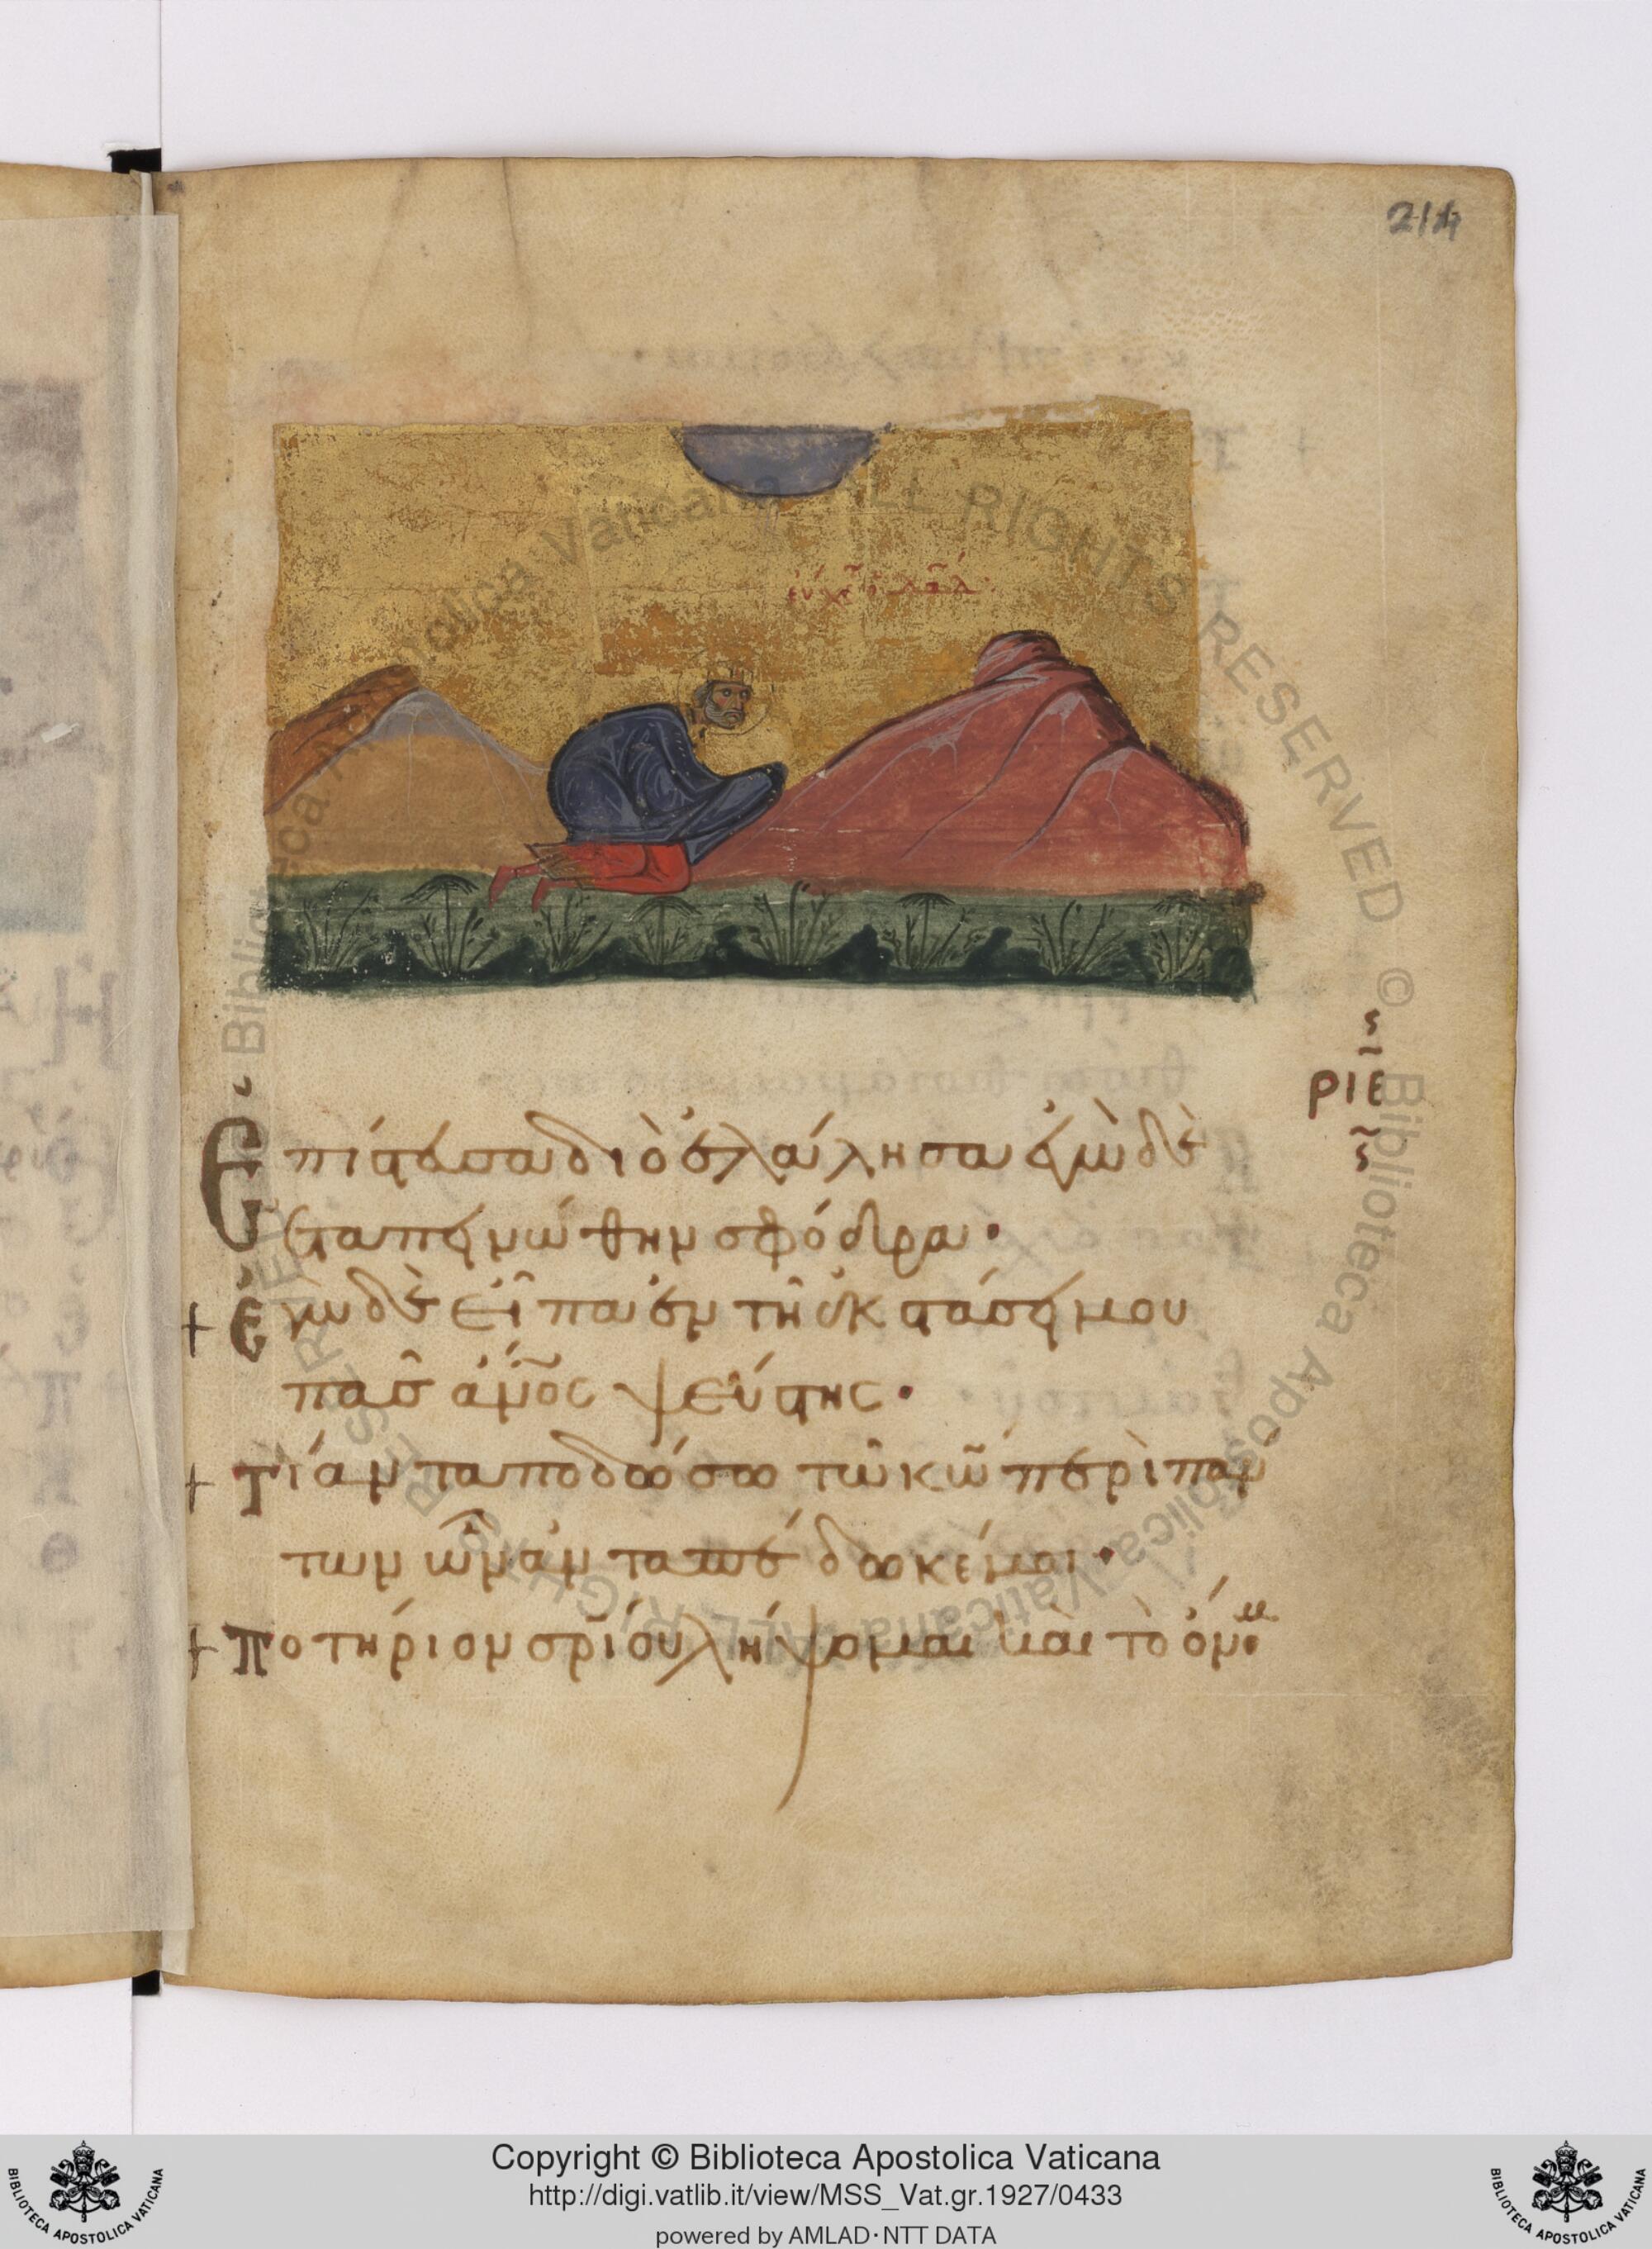 214
εὐχ(ὴ) ὁ Δαδ
ριε
Επίστευσα διὸ ἐλάλησα ἐγὼ δὲ
ἐταπεινώθην σφόδρα·
+ Ἐγὼ δὲ εἶπα ἐν τῆ ἐκστάσει μου
πᾶς ἄν̅ος ψεύστης·
+ Τί ἀνταποδώσω τῶ κ̅ω περὶ πάν
των ὧν ἀνταπέδωκέ μοι·
+ Ποτήριον σρ̅ίου λήψομαι καὶ τὸ ὄνομ
© Biblioteca Apostolica Vaticana ALL RIGHTS RESERVED © Biblioteca Apostolica Vaticana ALL RIGHTS RESERVED
Copyright © Biblioteca Apostolica Vaticana
http://digi.vatlib.it/view/MSS_Vat.gr.1927/0433
powered by AMLAD·NTT DATA
BIBLIOTECA APOSTOLICA VATICANA
BIBLIOTECA APOSTOLICA VATICANA